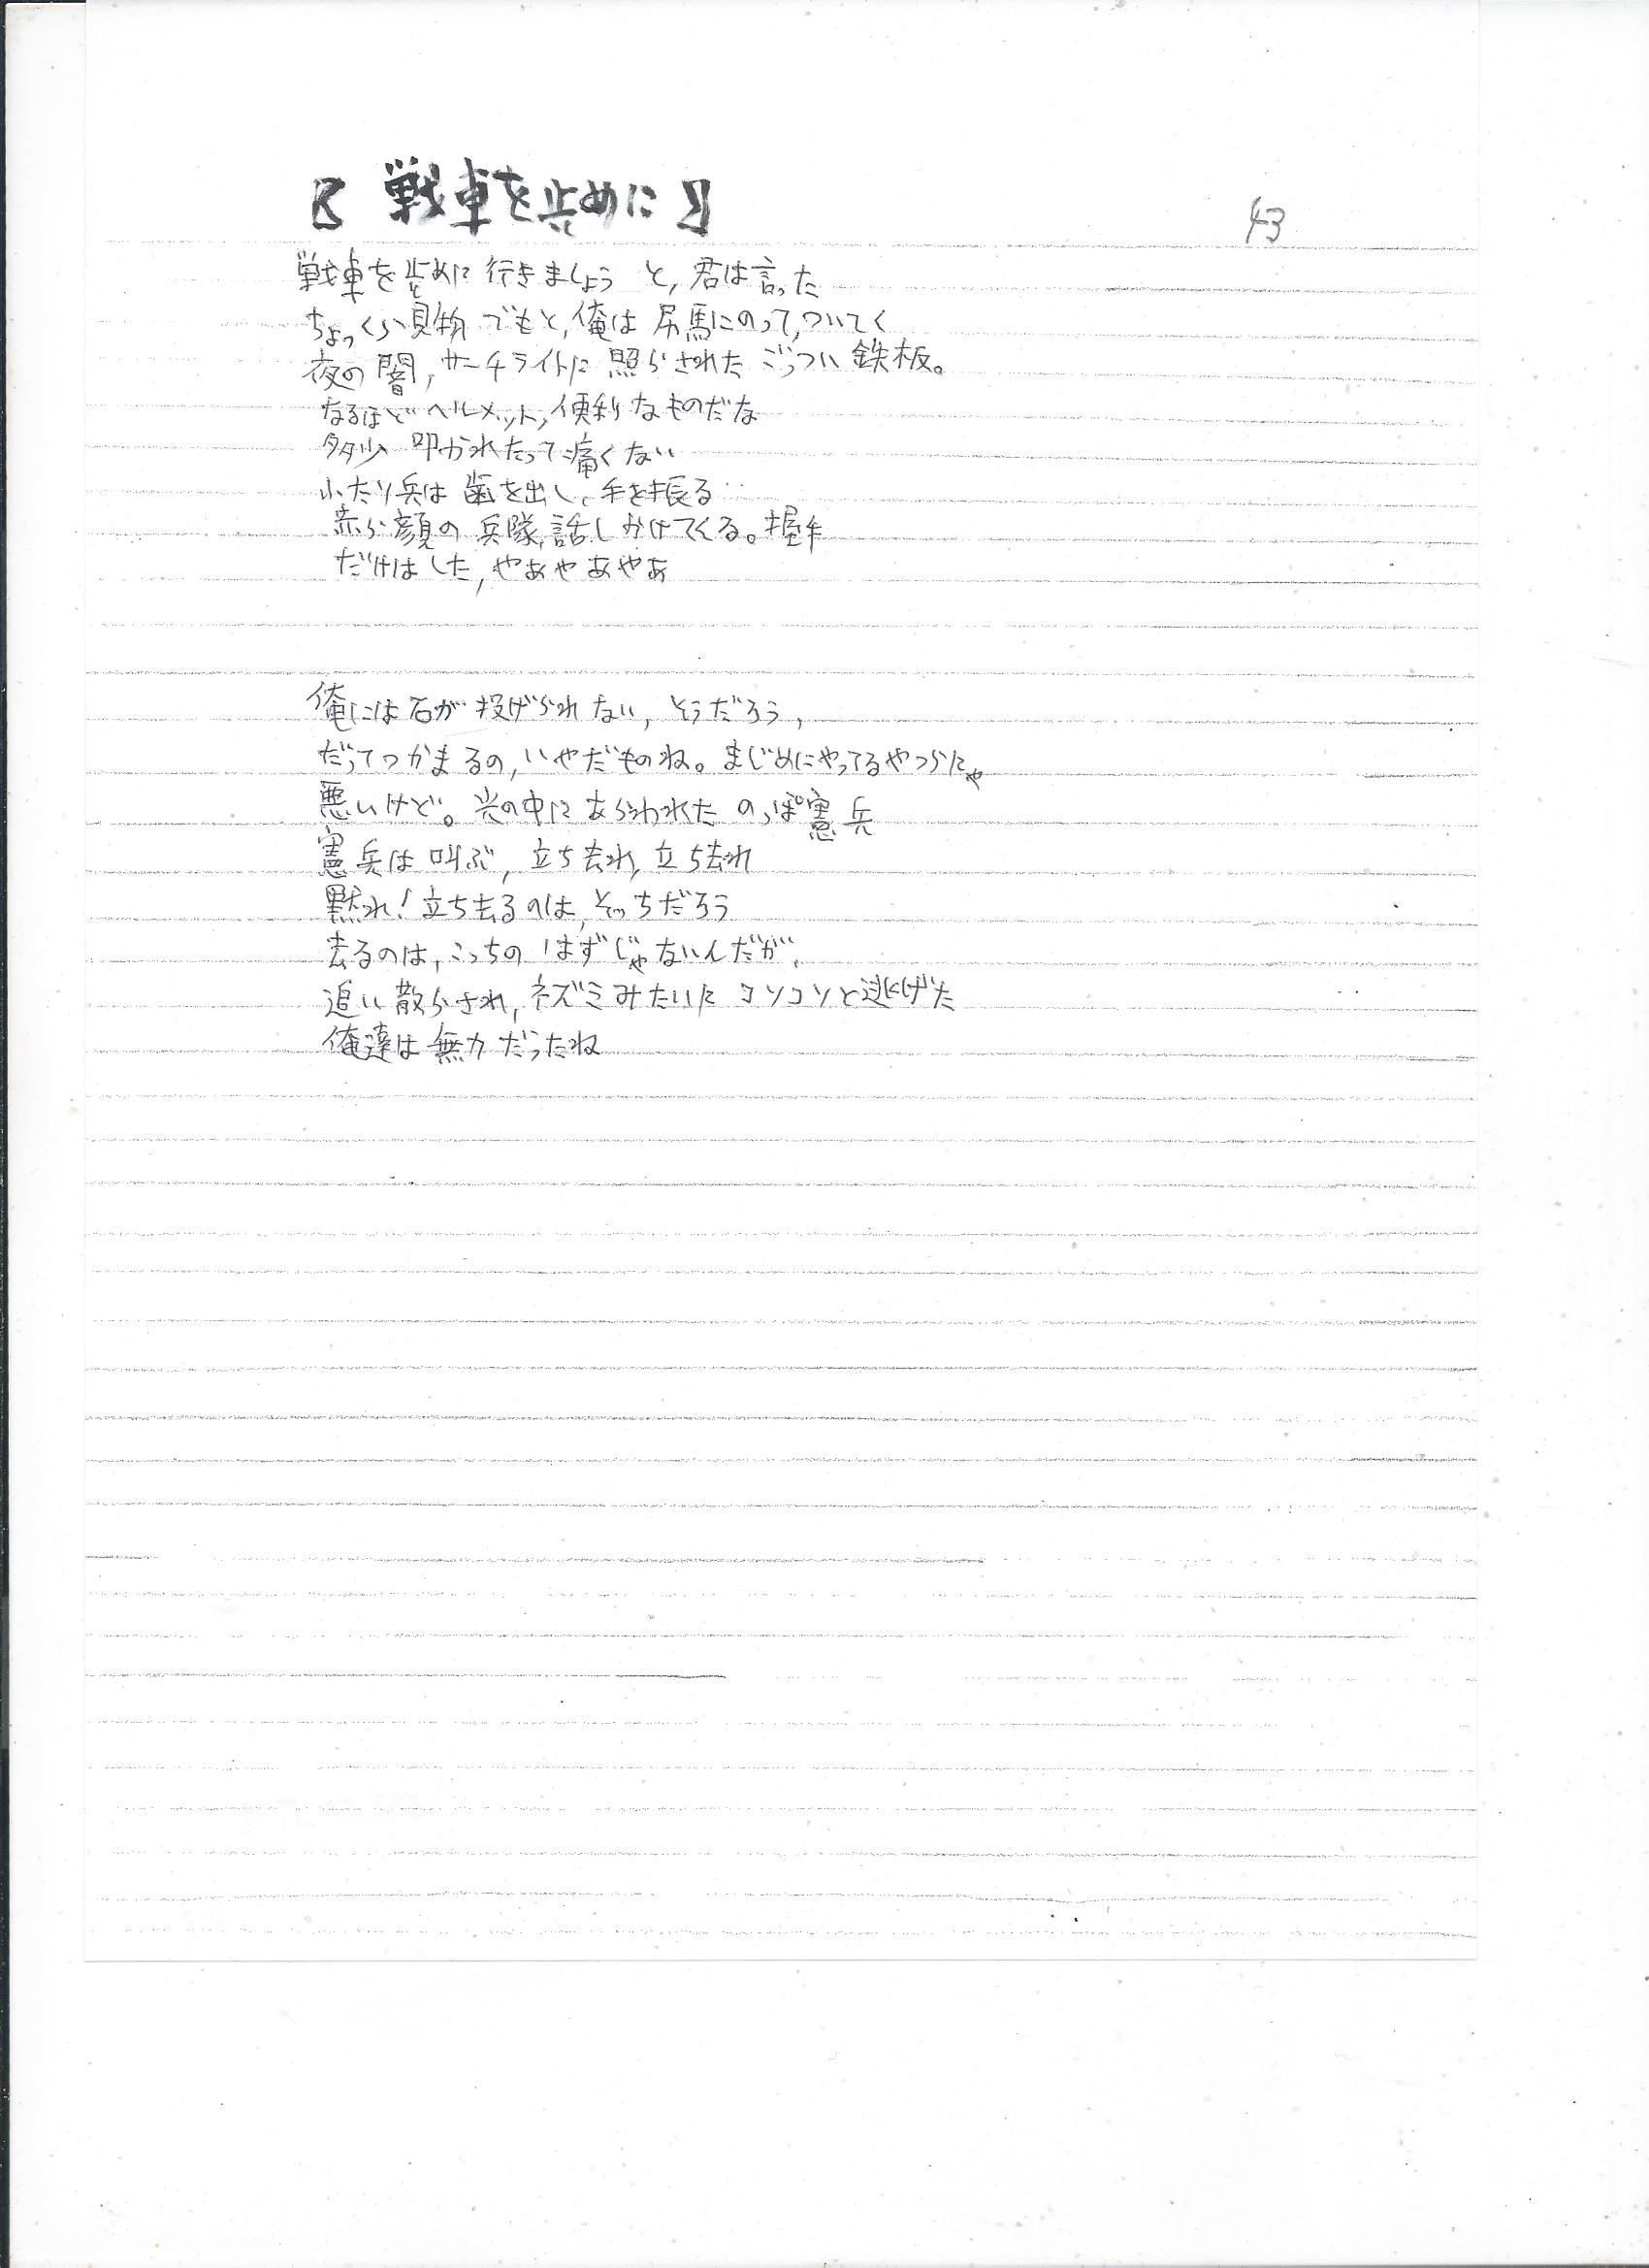 【戦車を止めに】
43
戦車を止めに行きましょう と, 君は言った
ちょっくら見物でもと, 俺は尻馬にのって, ついてく
夜の闇, サーチライトに照らされたごっつい鉄板。
なるほどヘルメット, 便利なものだな
多少叩かれたって痛くない
ふたり兵は歯を出し、手を振る
赤ら顔の兵隊, 話しかけてくる。握手
だけはした, やあやあやあ
俺には石が投げられない, そうだろう,
だってつかまるの, いやだものね。まじめにやってるやつらにゃ
悪いけど。光の中にあらわれたのっぽ憲兵
憲兵は叫ぶ, 立ち去れ, 立ち去れ
黙れ! 立ち去るのは, そっちだろう
去るのは, こっちのはずじゃないんだが、
追い散らされ, ネズミみたいにコソコソと逃げた
俺達は無力だったね